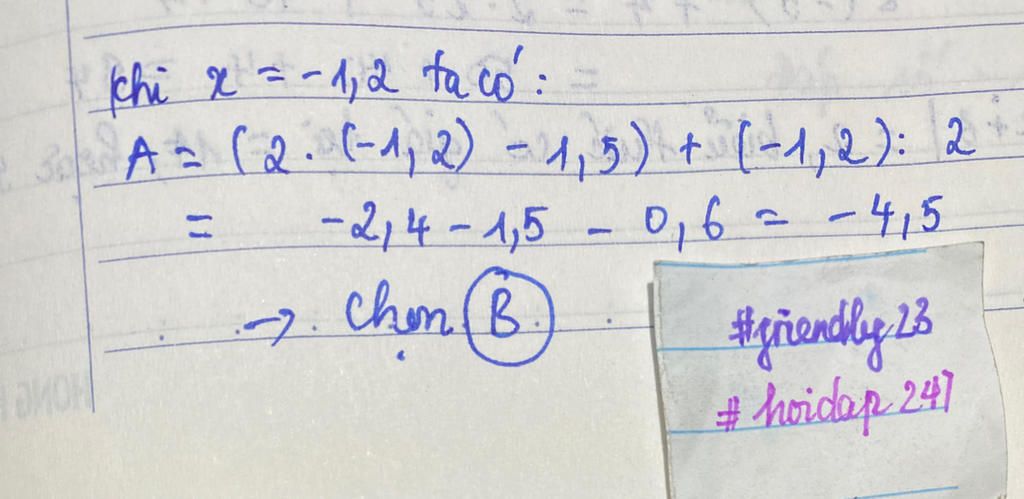 khi x = -1,2 ta có:
A = (2 . (-1,2) - 1,5) + (-1,2) : 2
= -2,4 - 1,5 - 0,6 = -4,5
→ Chọn B.
#friendly23
#hoidap247